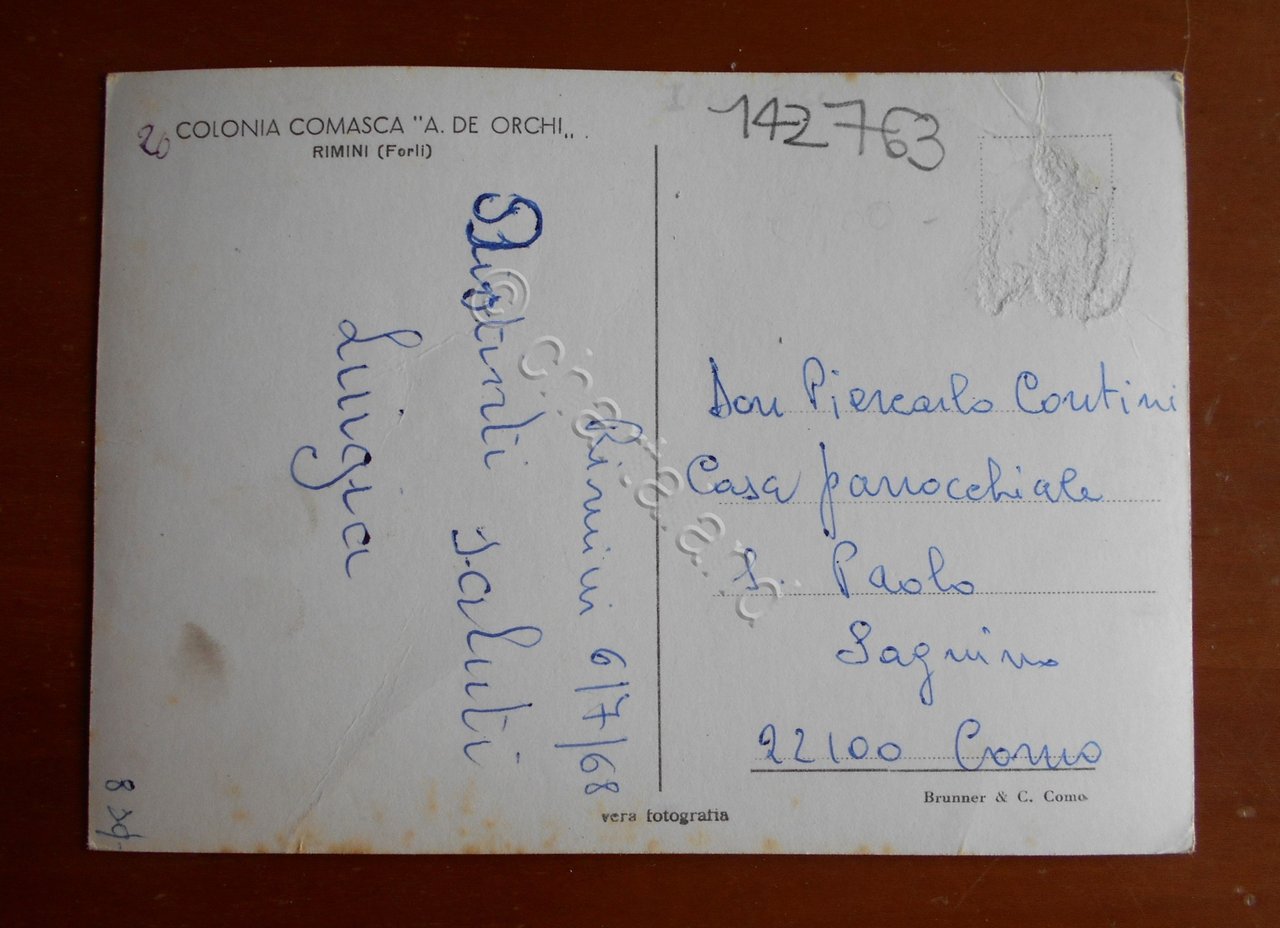 20 COLONIA COMASCA "A. DE ORCHI„ .
RIMINI (Forlì)
142763
Rimini 6/7/68
Distinti saluti
Luigia
Don Piercarlo Contini
Casa parrocchiale
S. Paolo
Sagnino
22100 Como
Brunner & C. Como
vera fotografia
© cartaria.a